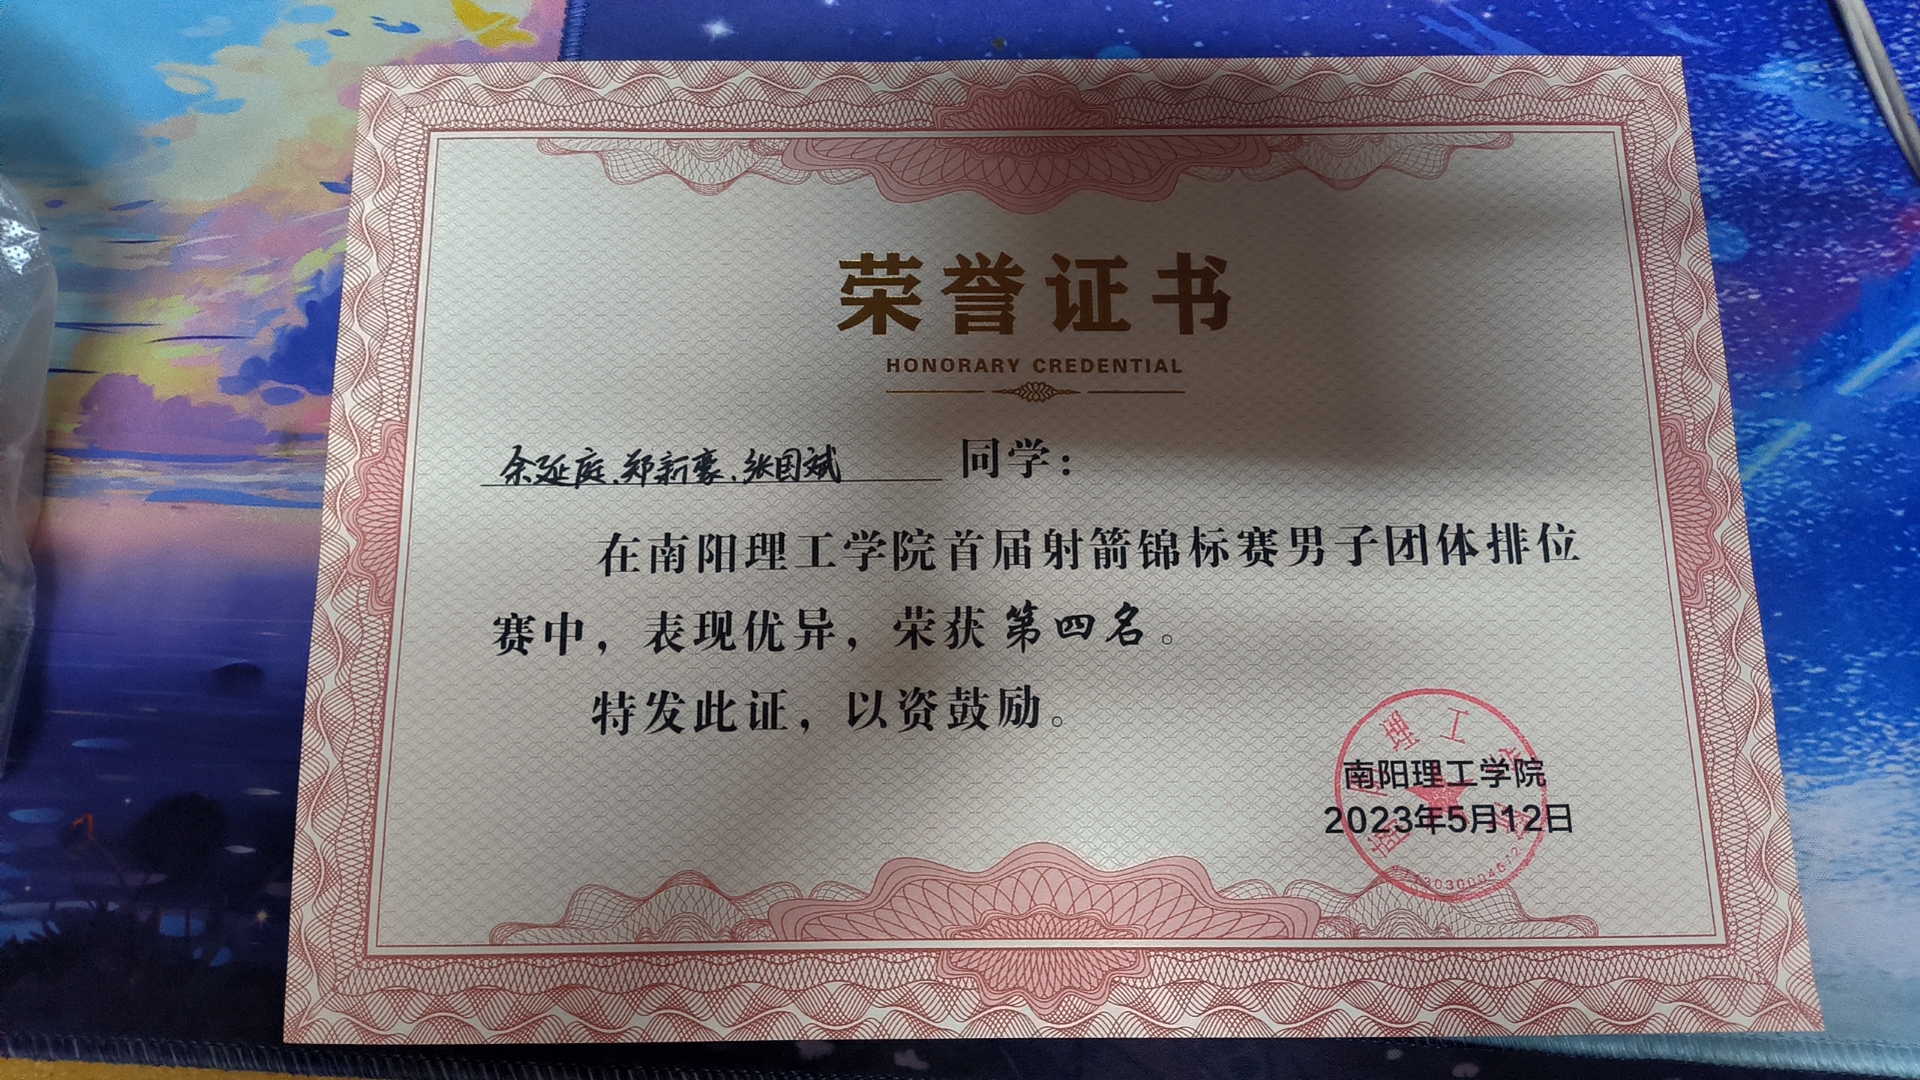 荣誉证书
HONORARY CREDENTIAL
余延庭、郑新豪、张国斌 同学：
在南阳理工学院首届射箭锦标赛男子团体排位
赛中，表现优异，荣获第四名。
特发此证，以资鼓励。
南阳理工学院
2023年5月12日